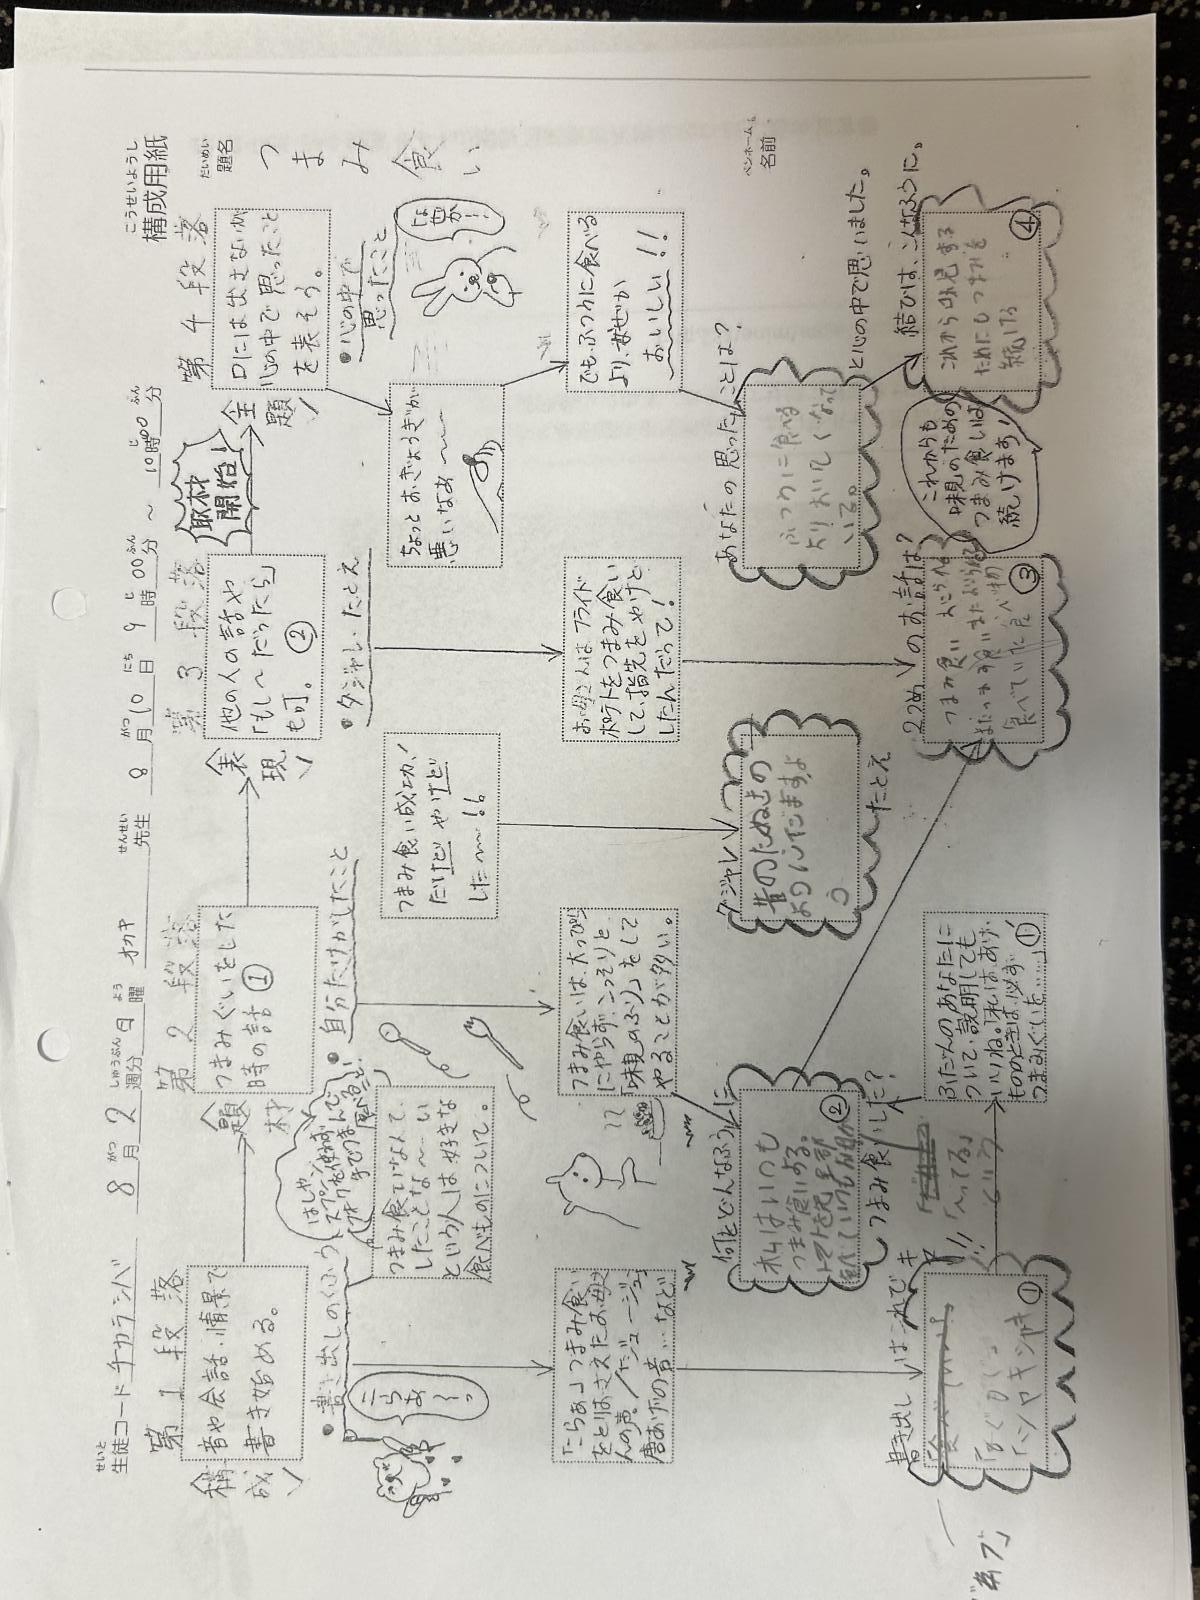 こうせいようし
構成用紙
だいめい
題名
つまみ食い
ペンネーム。
名前
せいと
生徒コード チカラシバ
8月2週分
日曜
オカヤ 先生
8月10日9時00分～10時00分
第1段落
構成
音や会話、情景で
書き始める。
第2段落
題材
つまみぐいをした
時の話①
第3段落
表現
他の人の話や
「もし～だったら」
も可。②
取材
開始！
第4段落
主題
口には出さないが
心の中で思ったこと
を表そう。
・書き出しのくふう
こらぁ～っ
「こらぁ」つまみ食い
をとりおさえたお母
さんの声。/「ジュージュー」
唐あげの音…など
書き出しはこれでキマリ!!
①
はし、
スプーン、
フォークを使わず
手でつまんで
食べる…!
・自分だけがしたこと
つまみ食いなんて、
したことな～い
という人は好きな
食べものについて。
つまみ食いは、大っぴら
にやらず、こっそりと、
「味見のふり」をして
やることが多い。
何をどんなふうに
私はいつも
つまみ食いする。
②
つまみ食いした？
ふだんのあなたに
ついて、説明しても
いいね。「私は、あげ
もののときは、必ず
つまみぐいを……」①
・ダジャレ、たとえ
つまみ食い成功、
だけどやけど
した～!!。
ダジャレ
昔のたぬきの
ようしんでますよ
う
たとえ
お母さんはフライド
ポテトをつまみ食い
して、指先をやけど
したんだって！
2つめのお話は？
つまみ食い
食べていた食べ物
③
・心の中で
思ったこと
なぜか…
ちょっとおぎょうぎが
悪いなぁ～～
でも、ふつうに食べる
より、なぜか
おいしい!!
あなたの思ったことは？
ふつうに食べる
よりおいしくなって
いる。
と心の中で思いました。
結びは、こんなふうに。
これから味見する
ためにもつまみを
続ける
④
これからも
味見のための
つまみ食いは
続けます！